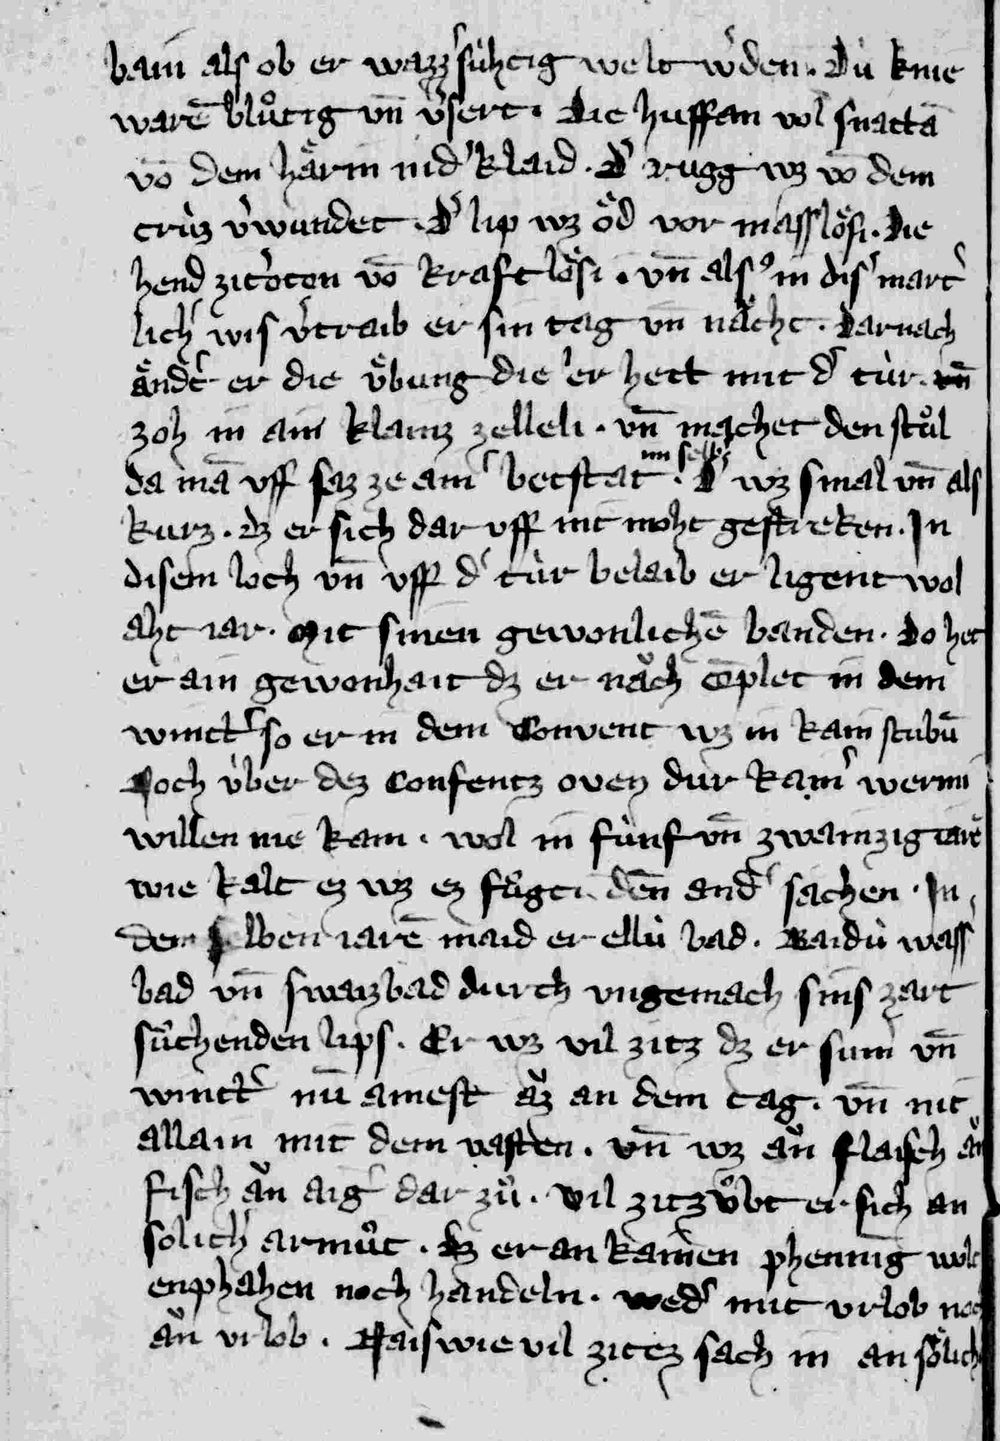 bain als ob er wazzˢsúhtig welt wˢden. Dú knie
warē blůtig vn̄ vˢsert. Die huffan vol snattā
vō dem härin nidˢklaid. Dˢ rugg wz vō dem
crúz vˢwundet. Dˢ lip wz öd vor masslösi. Die
hend zitˢoton vō kraftlösi. vn̄ also in disˢ martˢ
lichˢ wis vˢtraib er sin tag vn̄ nächt. Darnach
ändˢt er die übung die er hett mit dˢ túr. vn̄
zoh in ain klainz zelleli. vn̄ machet den stůl
da mā vff saz ze ainˢ betstat im selbˢ. Dˢ wz smal vn̄ als
kurz. dz er sich dar vff nit moht gestreken. In
disem loch vn̄ vff dˢ túr belaib er ligent wol
aht iar. Mit sinen gewonlichē banden. Do het
er ain gewonhait dz er nach cōplet in dem
wintˢ so er in dem Convent wz in kain stubū
Noch úber dez Confentz oven dur kainˢ wermi
willen nie kam. wol in fúnf vn̄ zwainzig iarē
wie kalt ez wz ez fügti dēn andˢ sachen. In
dem selben iarē maid er ellú bad. Baidú wassˢ
bad vn̄ swaizbad durch vngemach sins zart
sůchenden lips. Er wz vil zitz dz er sumˢ vn̄
wintˢ nū ainest äz an dem tag. vn̄ nit
allain mit dem vasten. vn̄ wz än flaisch än
fisch än aigˢ dar zů. Vil zitz übt er sich an
solichˢ armůt. dz er an kainen phennig wolt
enphahen noch handeln. wedˢ mit vrlob noch
än vrlob. Naiswie vil zittz sach in an sölich